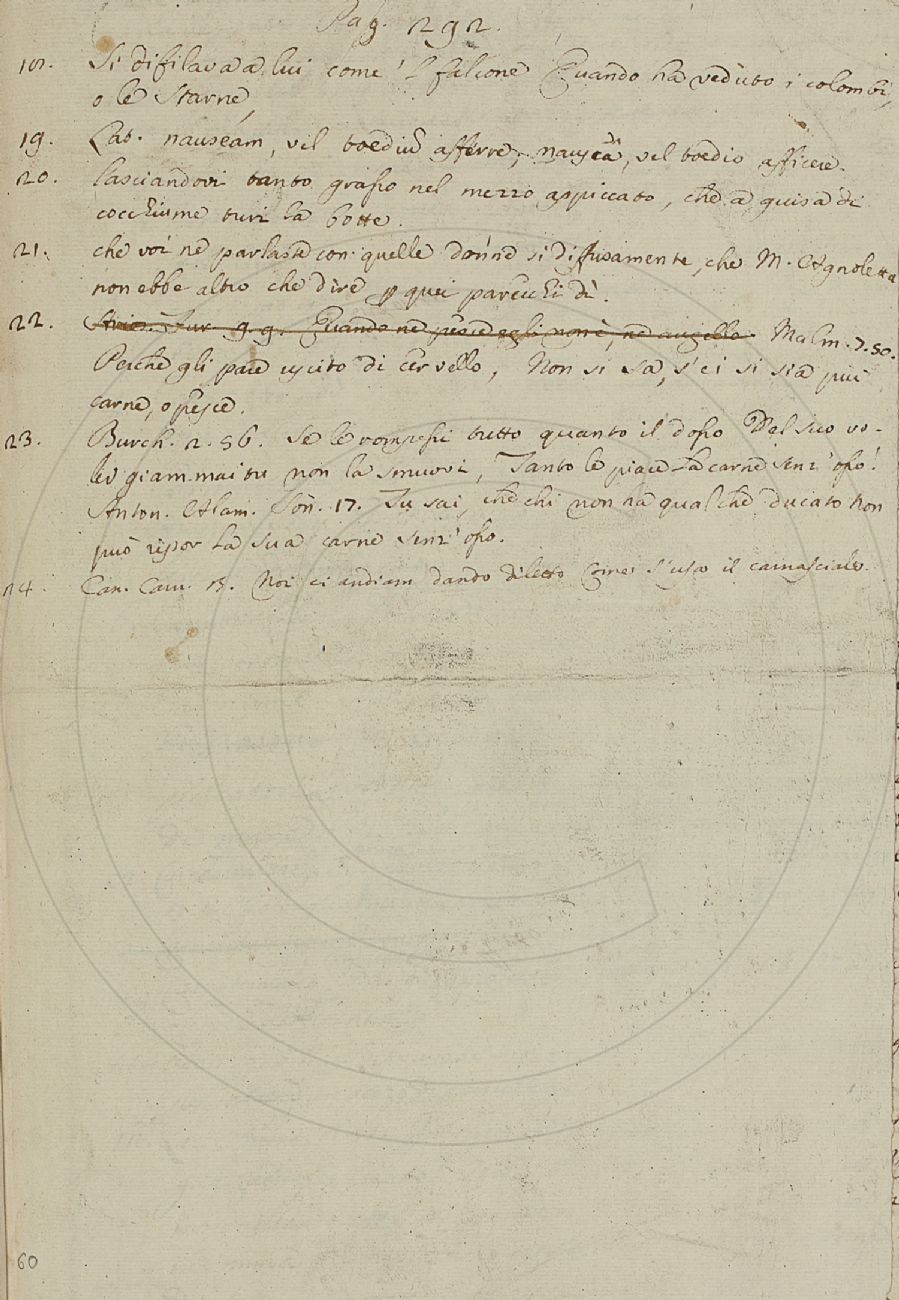 Pag. 292.
18. Si difilava a lui come 'l falcone Quando ha veduto i colombi,
o le Starne,
19. Lat. nauseam, vel toediū afferre, nauseā, vel toedio afficere.
20. lasciandovi tanto grasso nel mezzo appiccato, che a guisa di
cocchiume turi la botte.
21. che voi ne parlaste con quelle donne si diffusamente, che M. Agnoletta
non ebbe altro che dire p quei parecchi dì.
22. Ario. Fur. 9. 9. Quando nè pesce egli non è, nè augello. Malm. 7. 50.
Perchè gli pare uscito di cervello, Non si sa, s'ei si sia più
carne, o pesce.
23. Burch. 2. 56. Se le rompessi tutto quanto il dosso Del suo vo-
ler giammai tu non la smuovi, Tanto le piace la carne senz' osso!
Anton. Alam. Son. 17. Tu sai, che chi non ha qualche ducato Non
può riposr la sua carne senz' osso.
24. Can. Carn. 15. Noi ci andiam dando diletto Come s'usa il carnasciale.
60